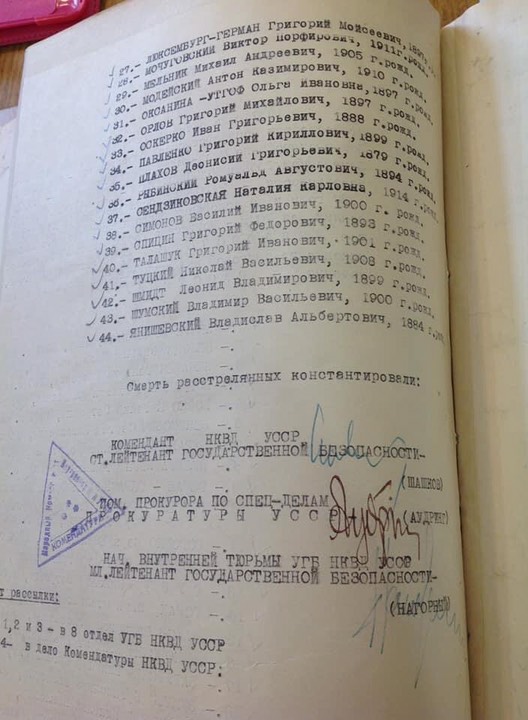 27.- ЛЮКСЕМБУРГ-ГЕРМАН Григорий Моисеевич,
28.- МОЧУГОВСКИЙ Виктор Порфирович, 1911г.рожд.
29.- МЕЛЬНИК Михаил Андреевич, 1905 г.рожд.
30.- МОДЕЙСКИЙ Антон Казимирович, 1910 г.рожд.
31.- ОКСАНИНА -УТГОФ Ольга Ивановна,1897 г.рожд.
32.- ОРЛОВ Григорий Михайлович, 1897 г.рожд.
33.- ОСКЕРКО Иван Григорьевич, 1888 г.рожд.
34.- ПАВЛЕНКО Григорий Кириллович,1899 г.рожд.
35.- ПЛАХОВ Деонисий Григорьевич, 1879 г.рожд.
36.- РЫБИНСКИЙ Ромуальд Августович, 1894 г.рожд.
37.- СЕНДЗИКОВСКАЯ Наталия Карловна, 1914 г.рожд.
38.- СИМОНОВ Василий Иванович, 1900 г. рожд.
39.- СПИЦИН Григорий Федорович, 1893 г.рожд.
40.- ТАЛАЩУК Григорий Иванович, 1901 г.рожд.
41.- ТУЦКИЙ Николай Васильевич, 1908 г.рожд.
42.- ШМИДТ Леонид Владимирович, 1899 г.рожд.
43.- ШУМСКИЙ Владимир Васильевич, 1900 г.рожд.
44.- ЯНИШЕВСКИЙ Владислав Альбертович, 1884 г.рожд.
Смерть расстрелянных константировали:
КОМЕНДАНТ НКВД УССР
СТ.ЛЕЙТЕНАНТ ГОСУДАРСТВЕННОЙ БЕЗОПАСНОСТИ-
(ШАШКОВ)
КОМЕНДАТУРА
ПОМ. ПРОКУРОРА ПО СПЕЦ-ДЕЛАМ
ПРОКУРАТУРЫ УССР
(АУДРИНГ)
НАЧ. ВНУТРЕННЕЙ ТЮРЬМЫ УГБ НКВД УССР
МЛ.ЛЕЙТЕНАНТ ГОСУДАРСТВЕННОЙ БЕЗОПАСНОСТИ-
(НАГОРНЫЙ)
т рассылки:
1,2 и 3 - в 8 отдел УГБ НКВД УССР
4- в дело Комендатуры НКВД УССР: